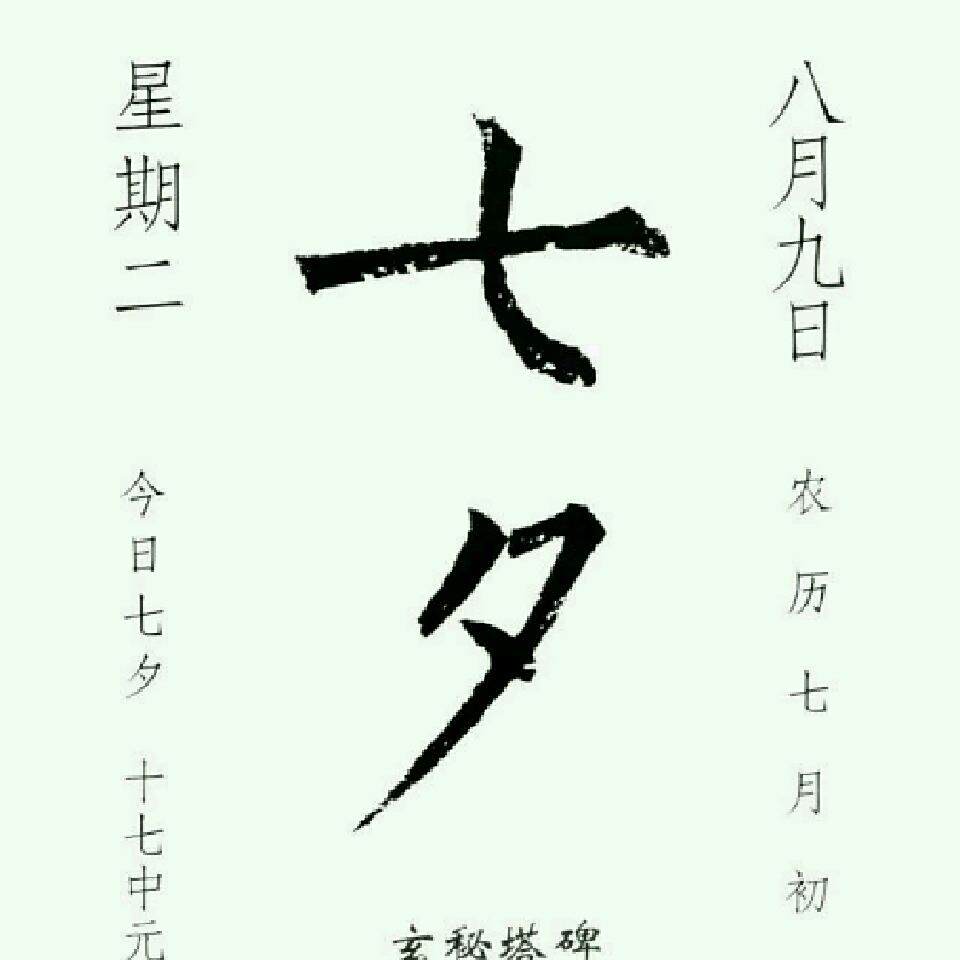 八月九日
农历七月初
七夕
玄秘塔碑
星期二
今日七夕 十七中元